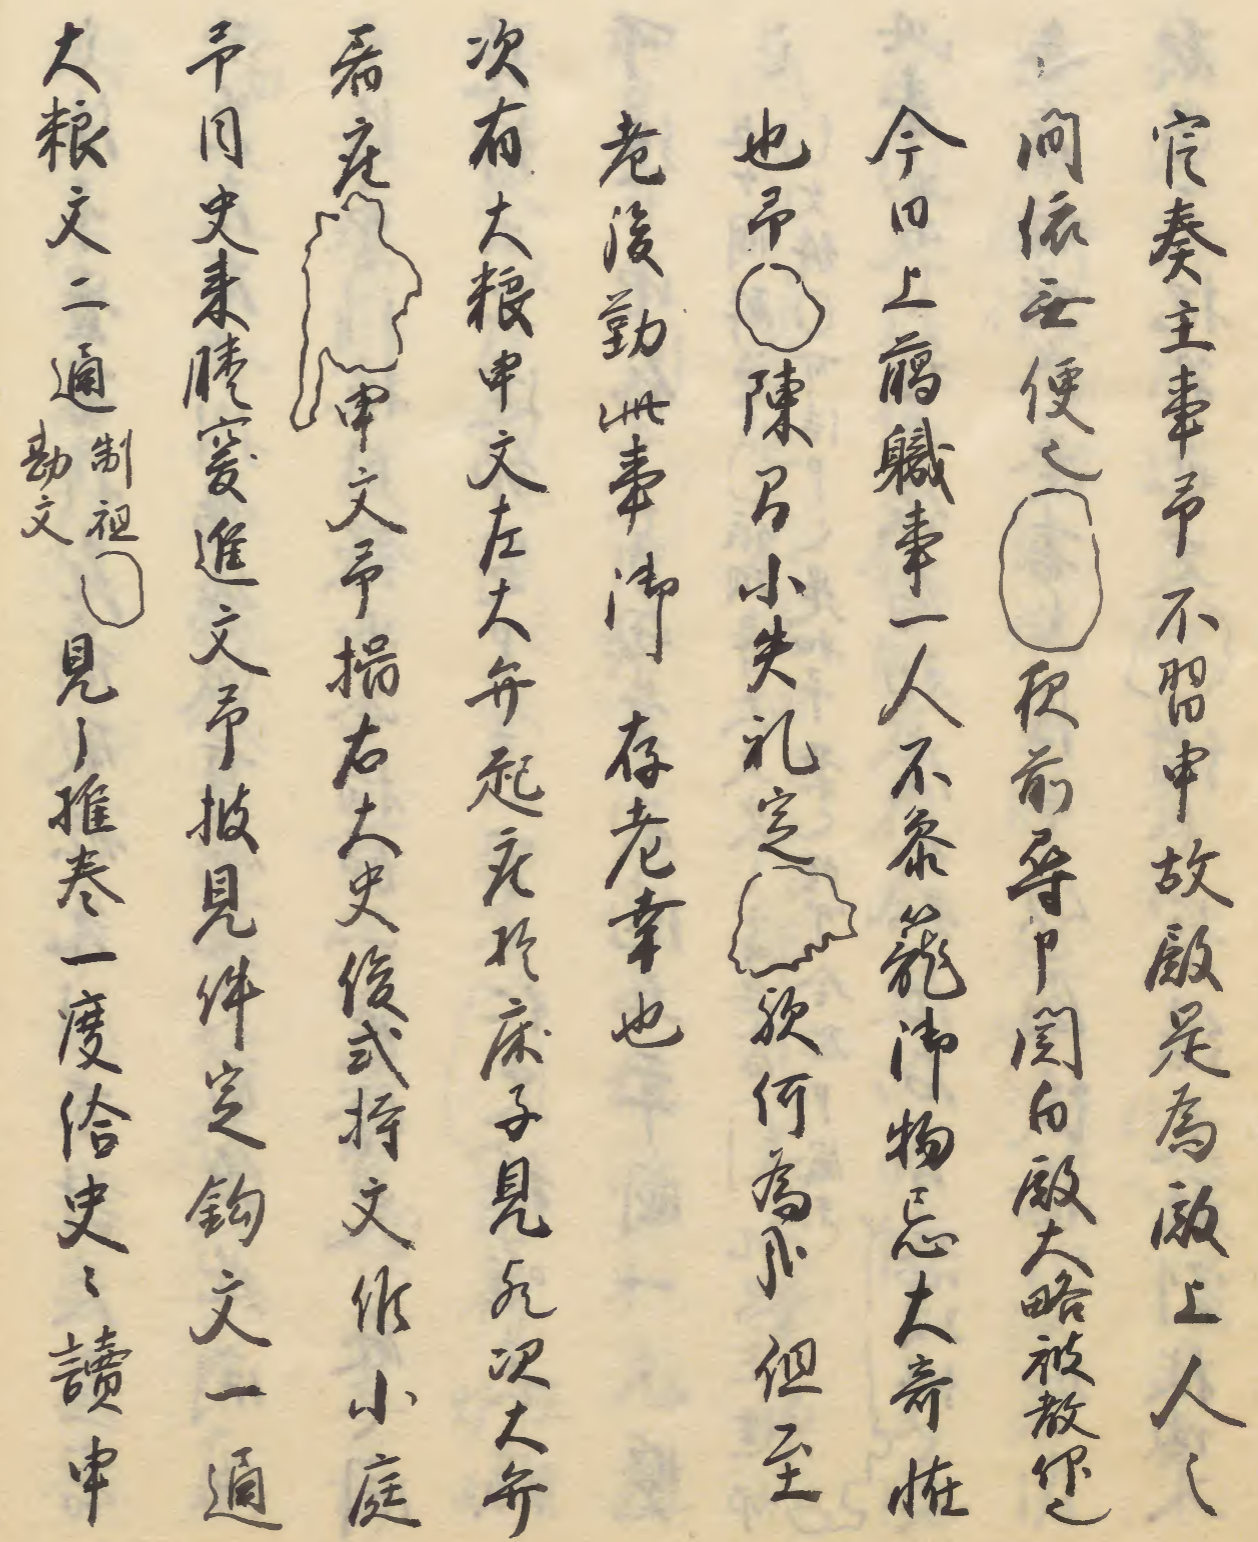 官奏主事予不習申故殿是為殿上人之
間依無便之 歟前尋申関白殿大略被教仰也
今日上﨟職事一人不参籠御物忌大奇恠
也予 陳曰小失礼定 歟何為乎但至
老後勤此事御 存老幸也
次有大粮申文左大弁起座於床子見了次大弁
着座 申文予揖右大史俊式持文候小庭
予目史来膝突進文予披見件定鈎文一通
大粮文二通
制祖
勘文
見了推巻一度給史〻讀申